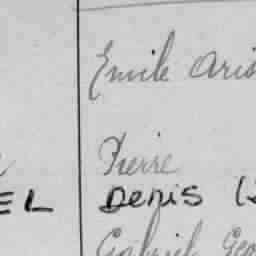 Emile Aris
Pierre
EL Denis (J
Gabriel Geo